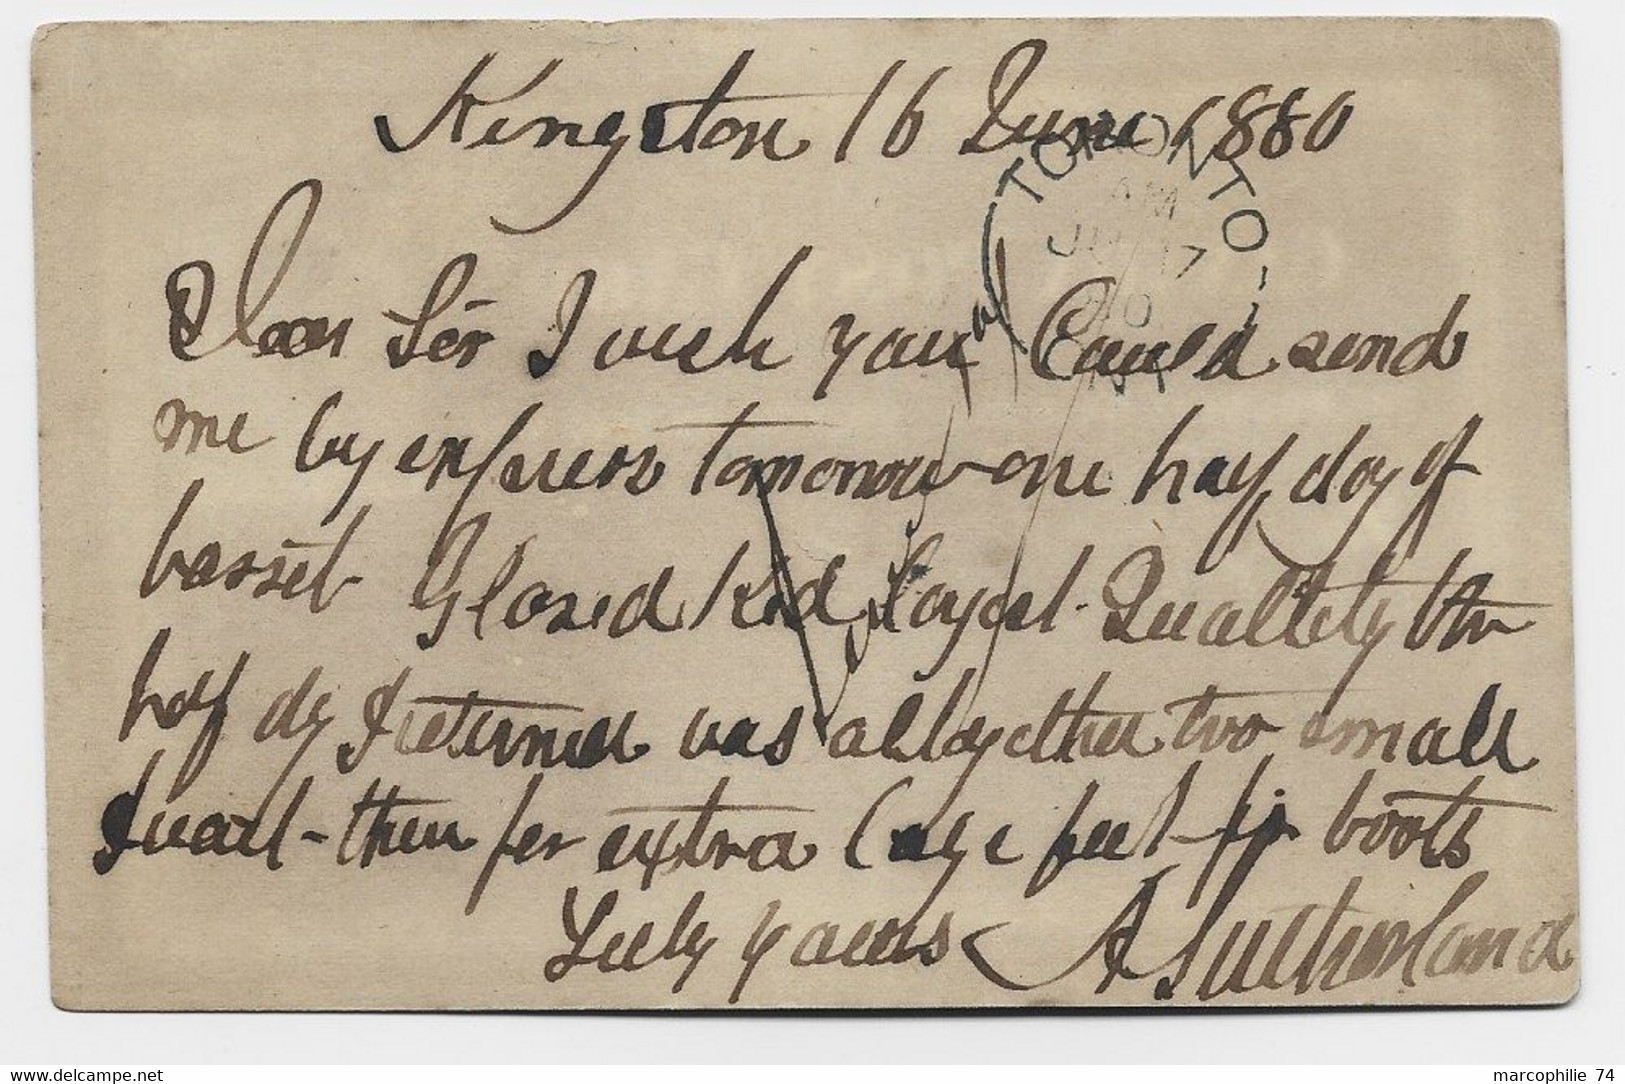 Kingston 16 June 1880
TORONTO
AM
JU 17
80
Dear Sir I wish you Could send
me by express tomorrow one half doz of
basset Glased Kid Loyal Quallety the
half dz I returned was altogether two small
want then for extra large feet for boots
Yours
A Sutherland
www.delcampe.net
marcophilie 74